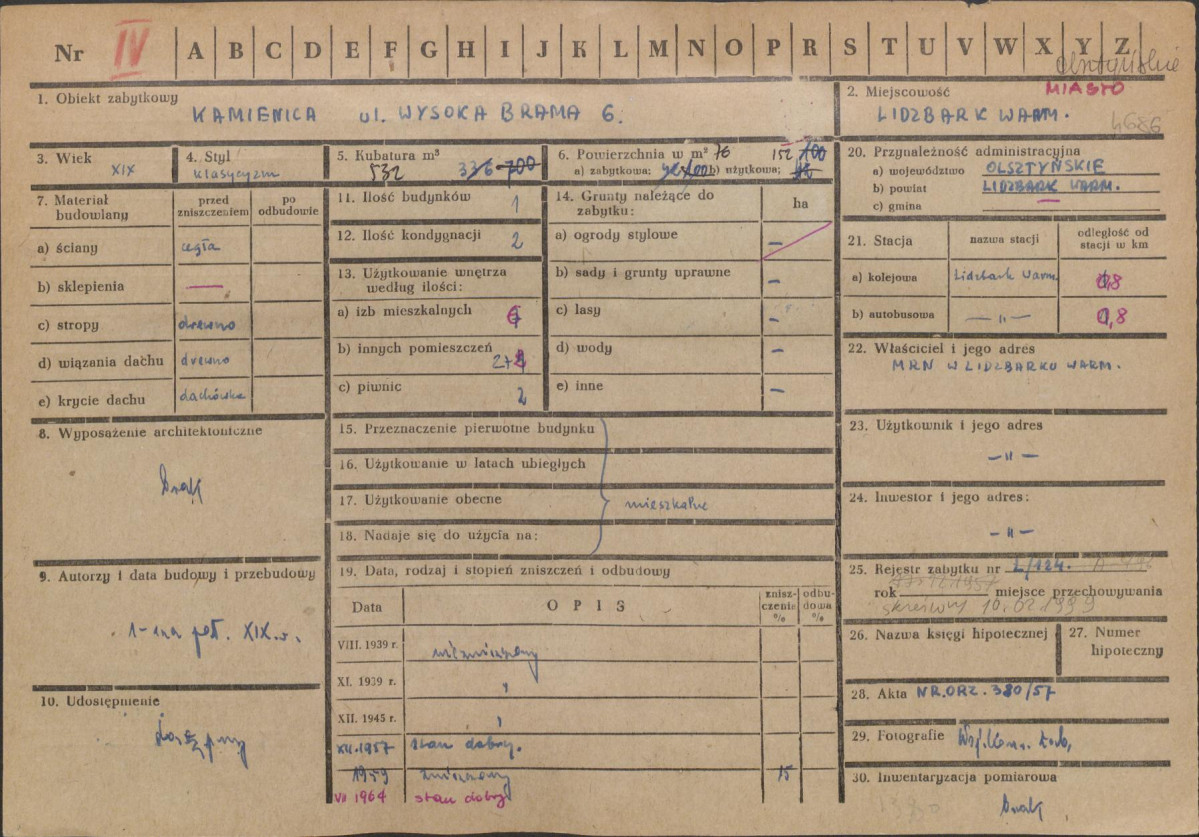 Nr IV A B C D E F G H I J K L M N O P R S T U V W X Y Z
olsztyńskie
1. Obiekt zabytkowy
KAMIENICA ul. WYSOKA BRAMA 6.
2. Miejscowość MIASTO
LIDZBARK WARM.
4686
3. Wiek
XIX
4. Styl
klasycyzm
5. Kubatura m³
532 336 700
6. Powierzchnia w m² 76 152 100
a) zabytkowa; b) użytkowa;
20. Przynależność administracyjna
a) województwo OLSZTYŃSKIE
b) powiat LIDZBARK WARM.
c) gmina
7. Materiał budowlany
przed zniszczeniem
po odbudowie
a) ściany cegła
b) sklepienia —
c) stropy drewno
d) wiązania dachu drewno
e) krycie dachu dachówka
11. Ilość budynków 1
12. Ilość kondygnacji 2
13. Użytkowanie wnętrza
według ilości:
a) izb mieszkalnych
b) innych pomieszczeń
c) piwnic 2
14. Grunty należące do
zabytku: ha
a) ogrody stylowe —
b) sady i grunty uprawne —
c) lasy —
d) wody —
e) inne —
21. Stacja
nazwa stacji
odległość od
stacji w km
a) kolejowa Lidzbark Warm. 0,8
b) autobusowa — " — 0,8
22. Właściciel i jego adres
MRN W LIDZBARKU WARM.
8. Wyposażenie architektoniczne
Brak
15. Przeznaczenie pierwotne budynku
16. Użytkowanie w latach ubiegłych
17. Użytkowanie obecne mieszkalne
18. Nadaje się do użycia na:
23. Użytkownik i jego adres
— " —
24. Inwestor i jego adres:
— " —
9. Autorzy i data budowy i przebudowy
1-sza poł. XIX w.
19. Data, rodzaj i stopień zniszczeń i odbudowy
Data OPIS
znisz-
czenie
%
odbu-
dowa
%
VIII. 1939 r. niezniszczony
XI. 1939 r. "
XII. 1945 r. "
XII.1957 stan dobry.
1959 zniszczony 15
VII 1964 stan dobry
25. Rejestr zabytku nr L/124.
rok miejsce przechowywania
skreślony 10.02.1999
26. Nazwa księgi hipotecznej
27. Numer
hipoteczny
10. Udostępnienie
Dostępny
28. Akta NR.ORZ. 380/57
29. Fotografie Woj. Kons. Zab.
30. Inwentaryzacja pomiarowa
Brak